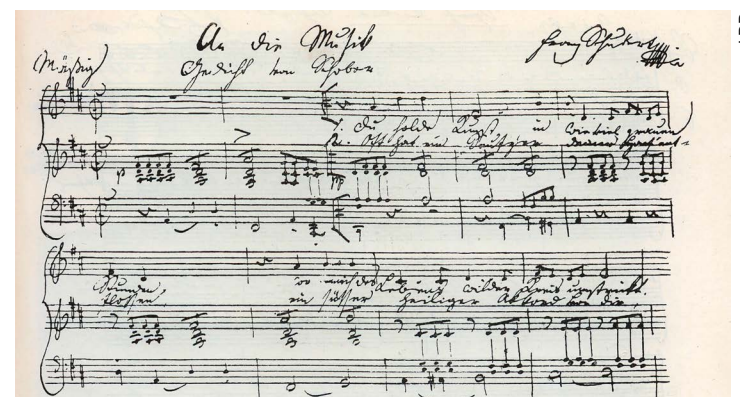 An die Musik
Franz Schubert
Mäßig
Gedicht von Schober
1. Du holde Kunst in wieviel grauen
2. Oft hat ein Seufzer deiner Harf ent=
p
pp
Stunden, wo mich des Lebens wilder Kreis umstrickt.
flossen, ein süsser heiliger Akkord von dir,